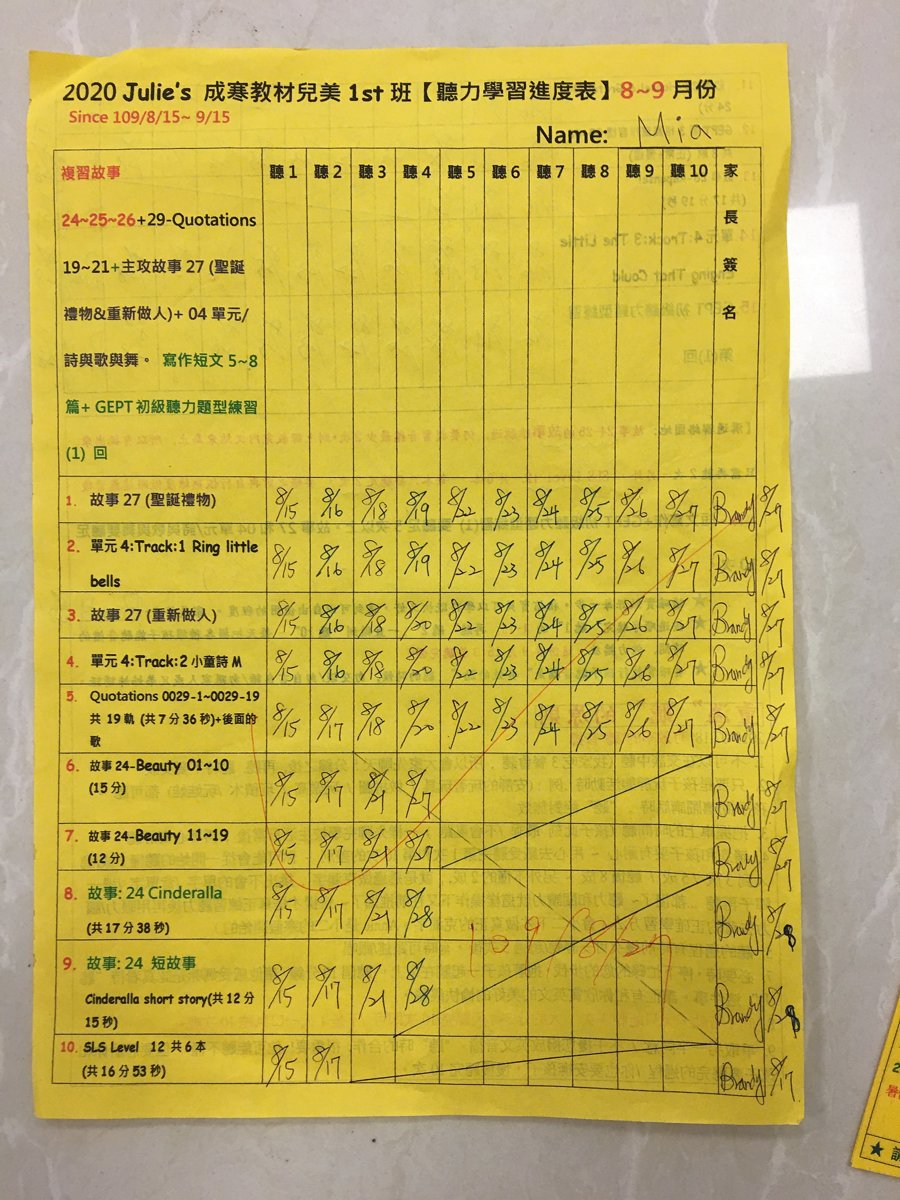 2020 Julie's 成寒教材兒美 1st 班【聽力學習進度表】8~9 月份
Since 109/8/15~ 9/15
Name: Mia
複習故事 聽 1 聽 2 聽 3 聽 4 聽 5 聽 6 聽 7 聽 8 聽 9 聽 10 家長簽名
24~25~26+29-Quotations
19~21+主攻故事 27 (聖誕
禮物&重新做人)+ 04 單元/
詩與歌與舞。 寫作短文 5~8
篇+ GEPT 初級聽力題型練習
(1) 回
1. 故事 27 (聖誕禮物) 8/15 8/16 8/18 8/19 8/22 8/23 8/24 8/25 8/26 8/27 Brandy 8/27
2. 單元 4:Track:1 Ring little
bells 8/15 8/16 8/18 8/19 8/22 8/23 8/24 8/25 8/26 8/27 Brandy 8/27
3. 故事 27 (重新做人) 8/15 8/16 8/18 8/20 8/22 8/23 8/24 8/25 8/26 8/27 Brandy 8/27
4. 單元 4:Track:2 小童詩 M 8/15 8/16 8/18 8/20 8/22 8/23 8/24 8/25 8/26 8/27 Brandy 8/27
5. Quotations 0029-1~0029-19
共 19軌 (共 7 分 36 秒)+後面的
歌 8/15 8/17 8/18 8/20 8/22 8/23 8/24 8/25 8/26 8/27 Brandy 8/27
6. 故事 24-Beauty 01~10
(15 分) 8/15 8/17 8/21 8/27 Brandy 8/27
7. 故事 24-Beauty 11~19
(12 分) 8/15 8/17 8/21 8/27 Brandy 8/27
8. 故事: 24 Cinderalla
(共 17 分 38 秒) 8/15 8/17 8/21 8/28 Brandy 8/28
109/8/27
9. 故事: 24 短故事
Cinderalla short story(共 12 分
15 秒) 8/15 8/17 8/21 8/28 Brandy 8/28
10. SLS Level 12 共 6 本
(共 16 分 53 秒) 8/15 8/17 Brandy 8/17